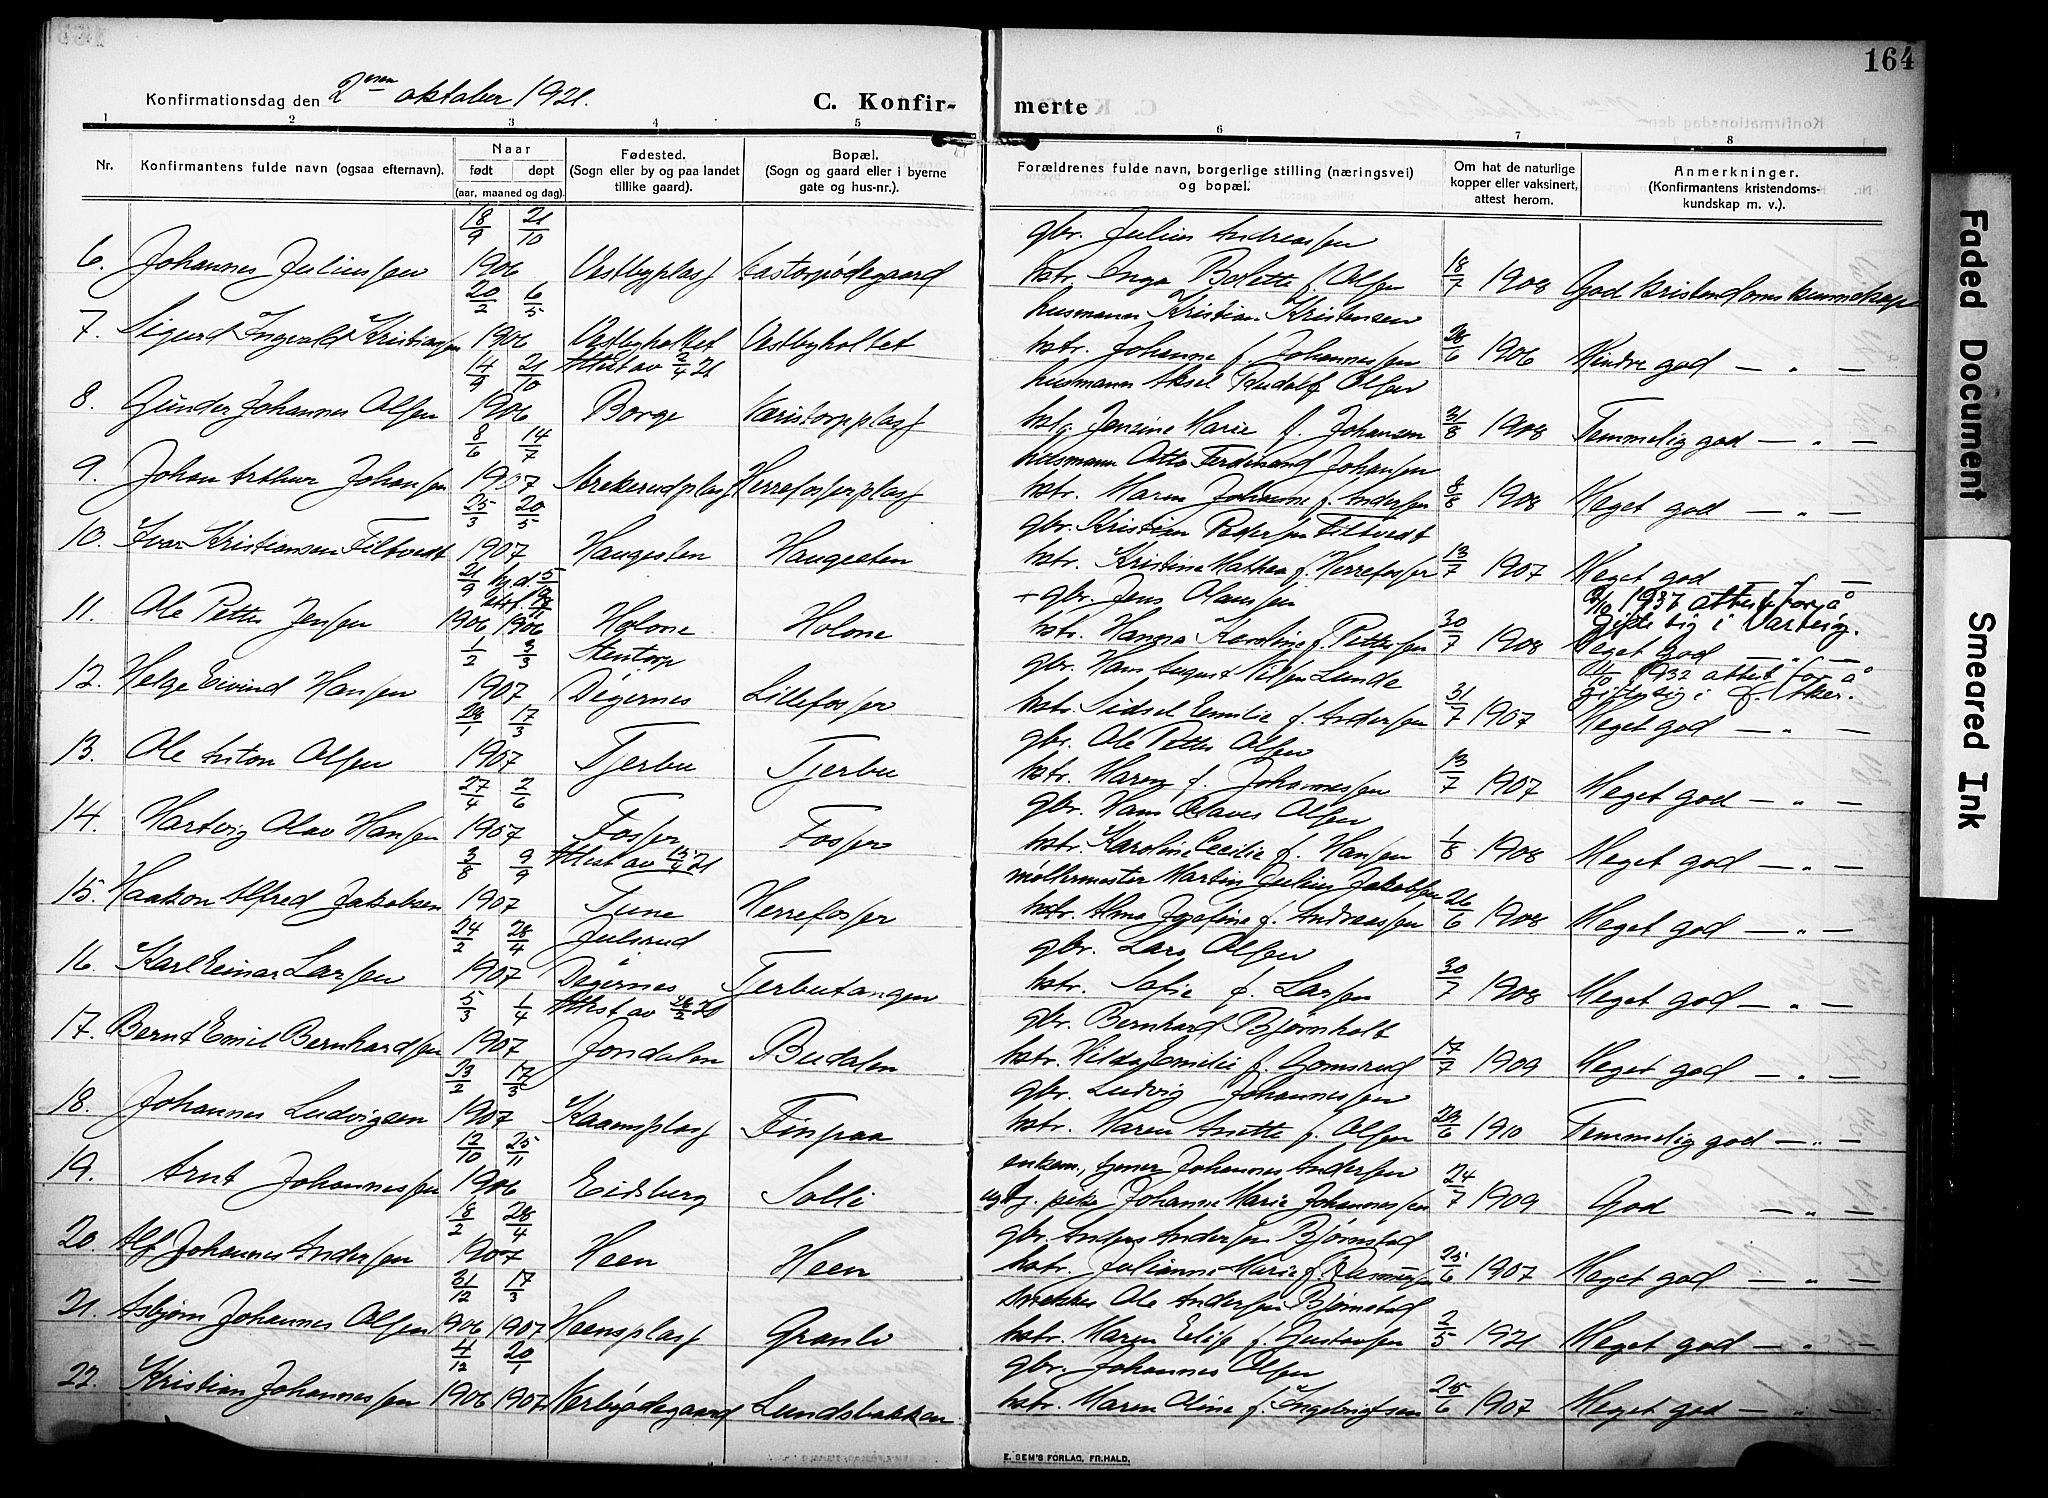 164
Konfirmationsdag den 2den oktober 1921.
C. Konfirmerte
1 2 3 4 5 6 7 8
Nr. Konfirmantens fulde navn (ogsaa efternavn).
Naar
født døpt
(aar, maaned og dag).
Fødested.
(Sogn eller by og paa landet
tillike gaard).
Bopæl.
(Sogn og gaard eller i byerne
gate og hus-nr.).
Forældrenes fulde navn, borgerlige stilling (næringsvei)
og bopæl.
Om hat de naturlige
kopper eller vaksinert,
attest herom.
Anmerkninger.
(Konfirmantens kristendoms-
kundskap m. v.).
18/9 21/10 gbr. Julius Andreassen
6. Johannes Juliussen 1906 Vestbyplass Kastorpødegaard hstr. Inga Bolette f. Olsen 18/7 1908 God kristendomskunnskap
20/2 6/5 husmann Kristian Kristensen
7. Sigurd Ingvald Kristiansen 1906 Vestbyholtet Vestbyholtet hstr. Johanne f. Johannessen 28/6 1906 Mindre god — " —
14/9 21/10 Attest av 2/4 21 husmann Aksel Rudolf Olsen
8. Gunder Johannes Olsen 1906 Borge Karistorpplass hstr. Jensine Marie f. Johansen 31/8 1908 Temmelig god — " —
8/6 14/7 husmann Otto Ferdinand Johansen
9. Johan Arthur Johansen 1907 Arekerudplass Herrefosserplass hstr. Maren Johanne f. Andersen 8/8 1908 Meget god — " —
25/3 20/5 gbr. Kristian Pedersen Filtvedt
10. Ivar Kristiansen Filtvedt 1907 Haugesten Haugesten hstr. Kristine Mathea f. Herrefosser 13/7 1907 Meget god — " —
21/9 hj.d. 5/10 + gbr. Jens Olaussen 1937 attest for å
11. Ole Petter Jensen 1906 1906 Holone Holone hstr. Hanna Karoline f. Pettersen 30/7 1908 gifte sig i Varteig.
Meget god — " —
1/2 3/3 Stentorp gbr. Hans August Nilsen Lunde 1932 attest for å
12. Helge Eivind Hansen 1907 Degernes Lillefosser hstr. Sidsel Emilie f. Andersen 31/7 1907 gifte sig i V. Aker.
Meget god — " —
28/1 17/3 gbr. Ole Petter Olsen
13. Ole Anton Olsen 1907 Tjerbu Tjerbu hstr. Maren f. Johannessen 13/7 1907 Meget god — " —
27/4 2/6 gbr. Hans Olaves Olsen
14. Hartvig Olav Hansen 1907 Fosser Fosser hstr. Karoline Cecilie f. Hansen 1/8 1908 Meget god — " —
3/8 9/9 Attest av 15/4 21 møllermester Martin Julius Jakobsen
15. Haakon Alfred Jakobsen 1907 Tune Herrefosser hstr. Alma Josefine f. Andreassen 26/6 1908 Meget god — " —
24/2 28/4 Julsrud gbr. Lars Olsen
16. Karl Einar Larsen 1907 Degernes Tjerbutangen hstr. Sofie f. Larsen 30/7 1908 Meget god — " —
5/3 1/4 Attest av 28/2 20 gbr. Bernhard Bjørnholt
17. Bernt Emil Bernhardsen 1907 Jondalen Budalen hstr. Hilda Emilie f. Gomsrud 17/7 1909 Meget god — " —
23/2 17/3 gbr. Ludvig Johannessen
18. Johannes Ludvigsen 1907 Kaaensplass Finpaa hstr. Maren Anette f. Olsen 29/6 1910 Temmelig god — " —
12/10 25/11 enkem., tjener Johannes Andersen
19. Arnt Johannessen 1906 Eidsberg Solli ug tj. pike Johanne Marie Johannessen 24/7 1909 God — " —
18/2 28/4 gbr. Anders Andersen Bjørnstad
20. Alf Johannes Andersen 1907 Heen Heen hstr. Julianne Marie f. Rasmussen 25/6 1907 Meget god — " —
31/12 17/3 snekker Ole Andersen Bjørnstad
21. Asbjørn Johannes Olsen 1906 1907 Heensplass Granli hstr. Maren Elise f. Gustavsen 2/5 1921 Meget god — " —
4/12 20/1 gbr. Johannes Olsen
22. Kristian Johannessen 1906 1907 Nerbyødegaard Lundsbakken hstr. Maren Oline f. Ingebrigtsen 25/6 1907 Meget god — " —
E. SEM'S FORLAG, FR.HALD.
Faded Document
Smeared Ink